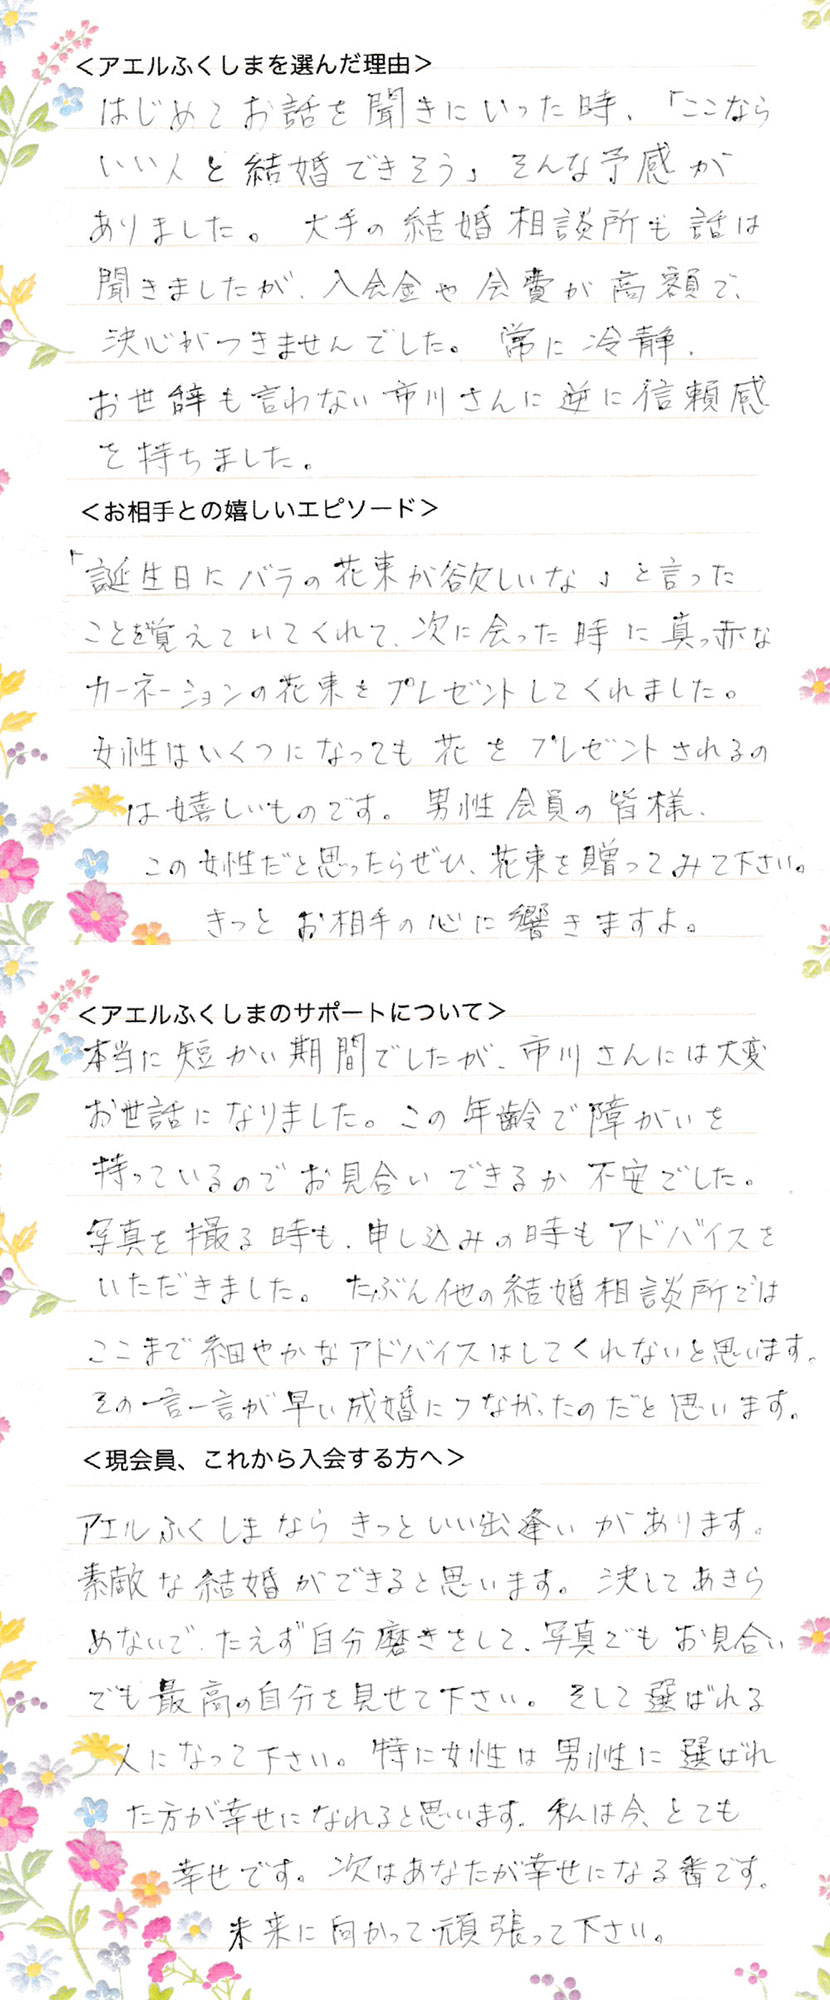 ＜アエルふくしまを選んだ理由＞
はじめてお話を聞きにいった時、「ここなら
いい人と結婚できそう」そんな予感が
ありました。大手の結婚相談所も話は
聞きましたが、入会金や会費が高額で、
決心がつきませんでした。常に冷静、
お世辞も言わない市川さんに逆に信頼感
を持ちました。
＜お相手との嬉しいエピソード＞
「誕生日にバラの花束が欲しいな」と言った
ことを覚えていてくれて、次に会った時に真っ赤な
カーネーションの花束をプレゼントしてくれました。
女性はいくつになっても花をプレゼントされるの
は嬉しいものです。男性会員の皆様、
この女性だと思ったらぜひ、花束を贈ってみて下さい。
きっとお相手の心に響きますよ。
＜アエルふくしまのサポートについて＞
本当に短かい期間でしたが、市川さんには大変
お世話になりました。この年齢で障がいを
持っているのでお見合いできるか不安でした。
写真を撮る時も、申し込みの時もアドバイスを
いただきました。たぶん他の結婚相談所では
ここまで細やかなアドバイスはしてくれないと思います。
その一言一言が早い成婚につながったのだと思います。
＜現会員、これから入会する方へ＞
アエルふくしまならきっといい出逢いがあります。
素敵な結婚ができると思います。決してあきら
めないで、たえず自分磨きをして、写真でもお見合い
でも最高の自分を見せて下さい。そして選ばれる
人になって下さい。特に女性は男性に選ばれ
た方が幸せになれると思います。私は今、とても
幸せです。次はあなたが幸せになる番です。
未来に向かって頑張って下さい。